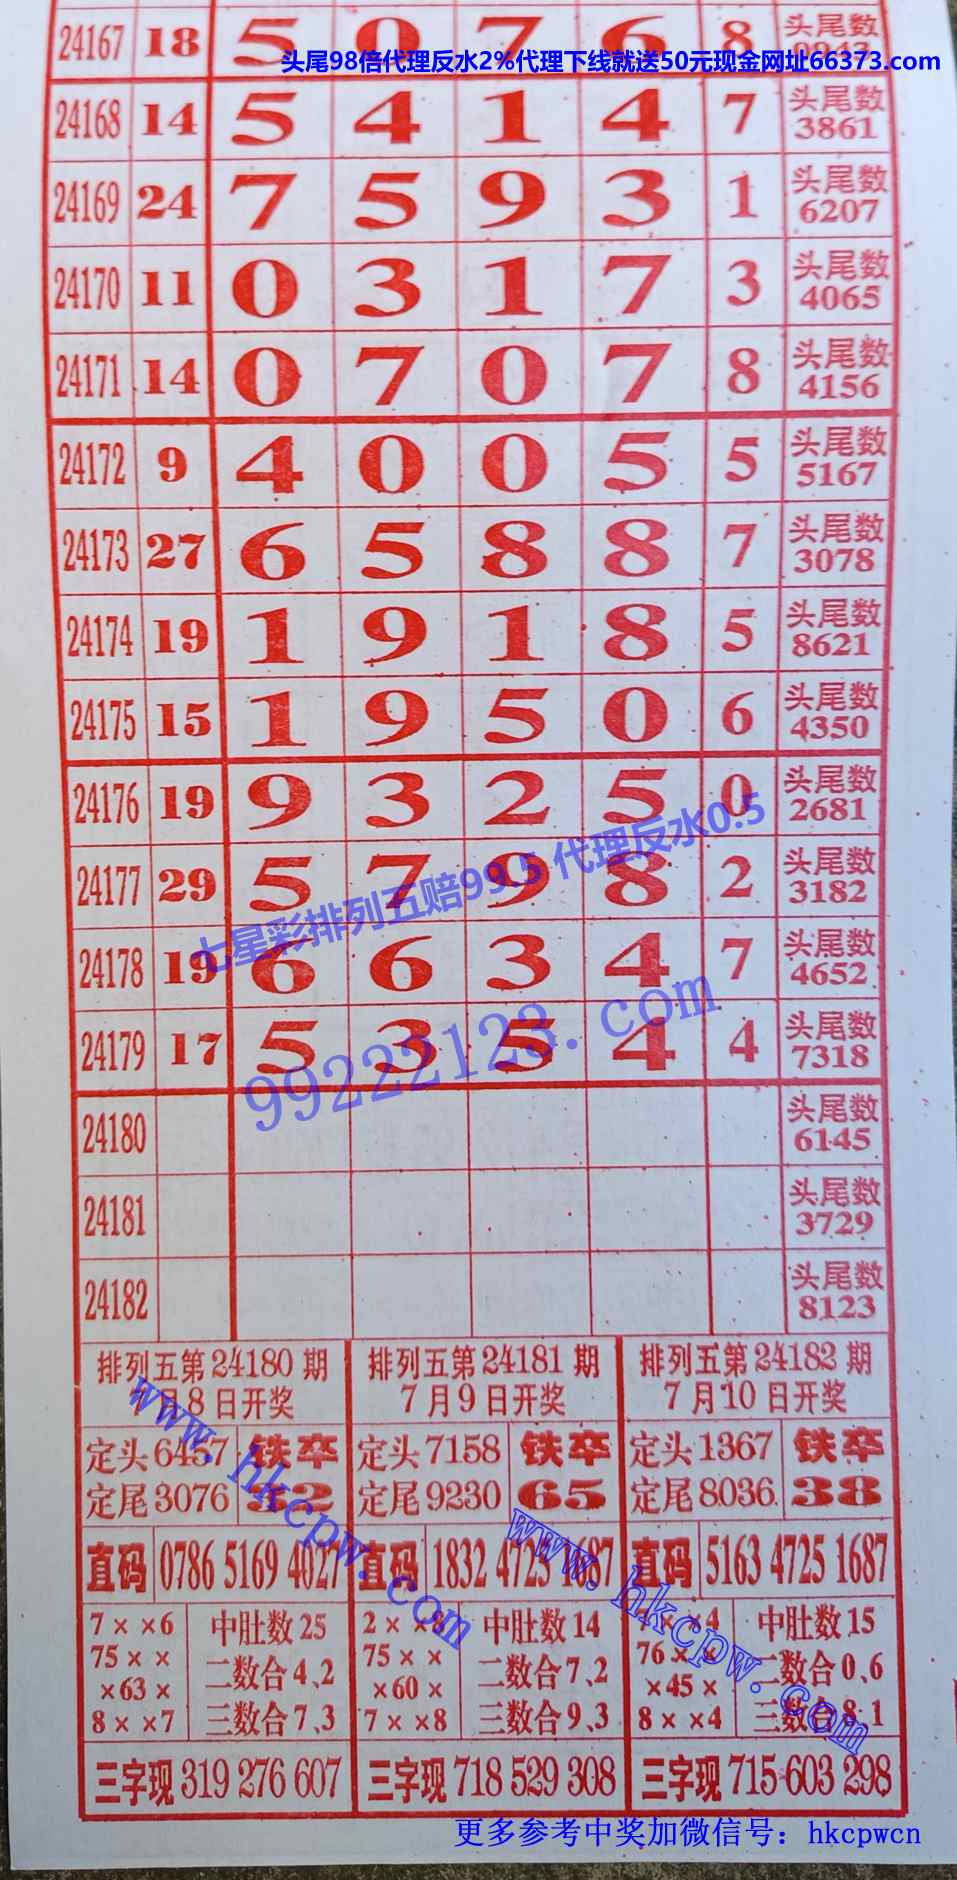 24167 18 5 0 7 6 8 头尾数
头尾98倍代理反水2%代理下线就送50元现金网址66373.com
24168 14 5 4 1 4 7 头尾数
3861
24169 24 7 5 9 3 1 头尾数
6207
24170 11 0 3 1 7 3 头尾数
4065
24171 14 0 7 0 7 8 头尾数
4156
24172 9 4 0 0 5 5 头尾数
5167
24173 27 6 5 8 8 7 头尾数
3078
24174 19 1 9 1 8 5 头尾数
8621
24175 15 1 9 5 0 6 头尾数
4350
24176 19 9 3 2 5 0 头尾数
2681
七星彩排列五赔99.5 代理反水0.5
24177 29 5 7 9 8 2 头尾数
3182
24178 19 6 6 3 4 7 头尾数
4652
99222123.com
24179 17 5 3 5 4 4 头尾数
7318
24180 头尾数
6145
24181 头尾数
3729
24182 头尾数
8123
排列五第24180期
7月8日开奖
定头6457 铁卒
定尾3076
直码 0786 5169 4027
7××6 中肚数25
75×× 二数合4,2
×63×
8××7 三数合7,3
三字现 319 276 607
排列五第24181期
7月9日开奖
定头7158 铁卒
定尾9230 65
直码 1832 4725 1687
2××8 中肚数14
75×× 二数合7,2
×60×
7××8 三数合9,3
三字现 718 529 308
排列五第24182期
7月10日开奖
定头1367 铁卒
定尾8036 38
直码 5163 4725 1687
中肚数15
76×× 二数合0,6
×45×
8××4 三数合8,1
三字现 715 603 298
www.hkcpw.com
www.hkcpw.com
更多参考中奖加微信号：hkcpwcn